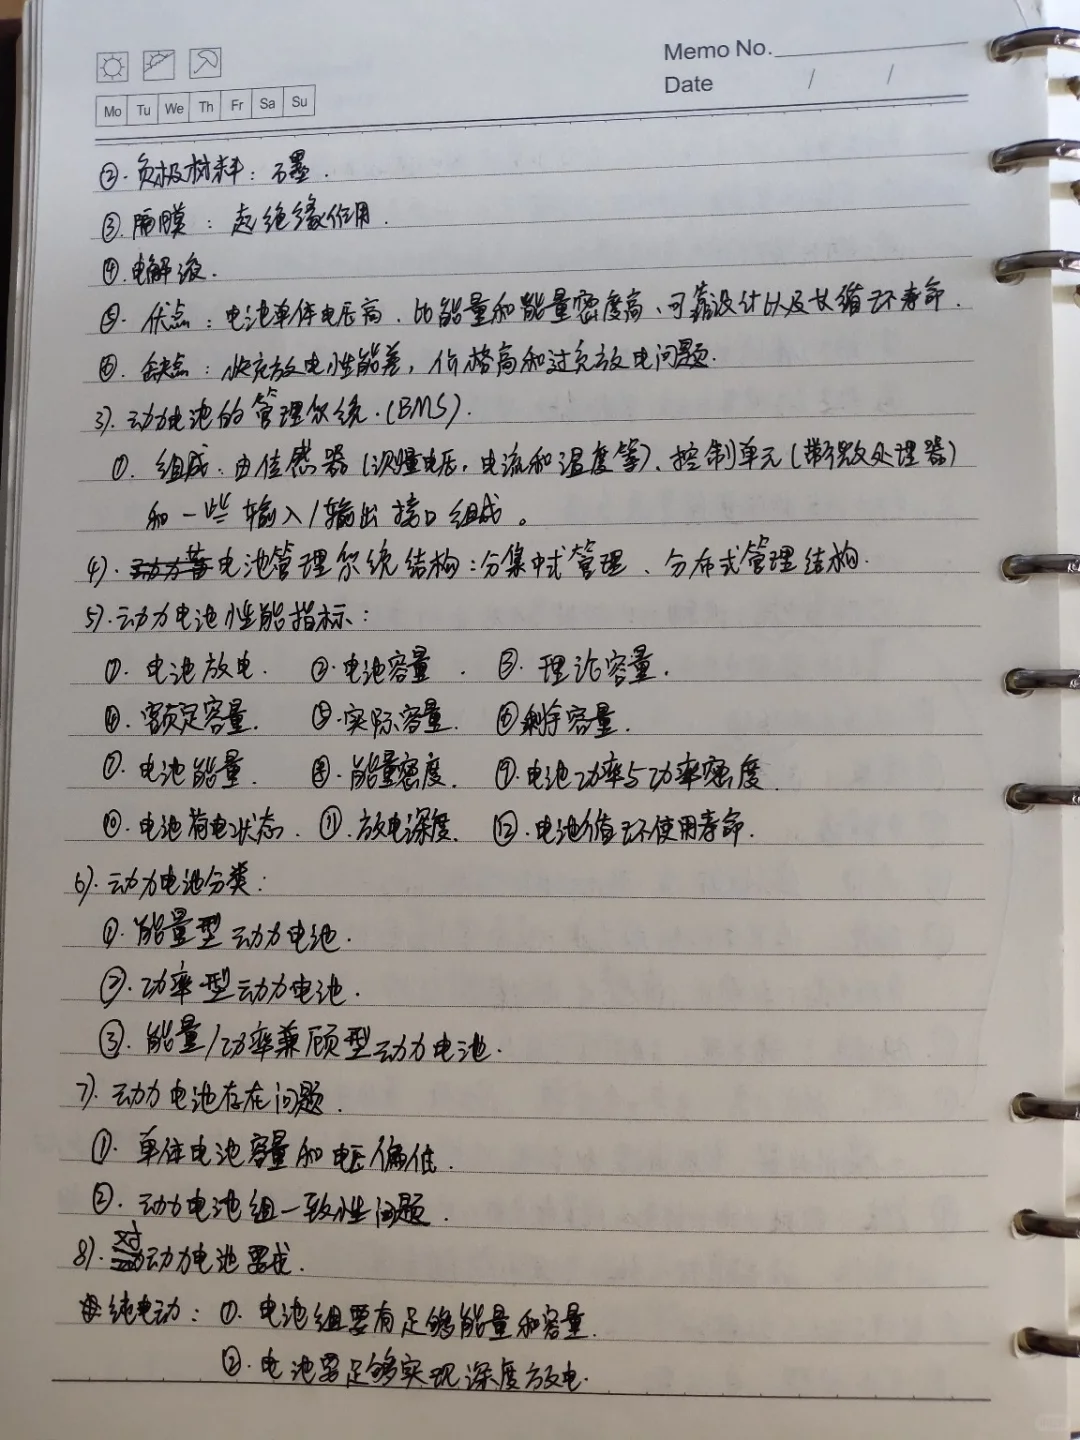 Memo No.
Date / /
Mo Tu We Th Fr Sa Su
②. 负极材料：石墨.
③. 隔膜：起绝缘作用.
④. 电解液.
⑤. 优点：电池单体电压高、比能量和能量密度高、可靠设计以及长循环寿命.
⑥. 缺点：快充放电性能差，价格高和过充放电问题.
3). 动力电池的管理系统.(BMS).
①. 组成：由传感器(测量电压，电流和温度等)、控制单元(带微处理器)
和一些输入/输出接口组成。
4). 电池管理系统结构：分集中式管理、分布式管理结构.
5). 动力电池性能指标：
①. 电池放电. ②. 电池容量. ③. 理论容量.
④. 额定容量. ⑤. 实际容量. ⑥. 剩余容量.
⑦. 电池能量. ⑧. 能量密度. ⑨. 电池功率与功率密度.
⑩. 电池荷电状态. ⑪. 放电深度. ⑫. 电池循环使用寿命.
6). 动力电池分类：
①. 能量型动力电池.
②. 功率型动力电池.
③. 能量/功率兼顾型动力电池.
7). 动力电池存在问题.
①. 单体电池容量和电压偏低.
②. 动力电池组一致性问题.
8). 对动力电池要求.
纯电动：①. 电池组要有足够能量和容量.
②. 电池要足够实现深度放电.